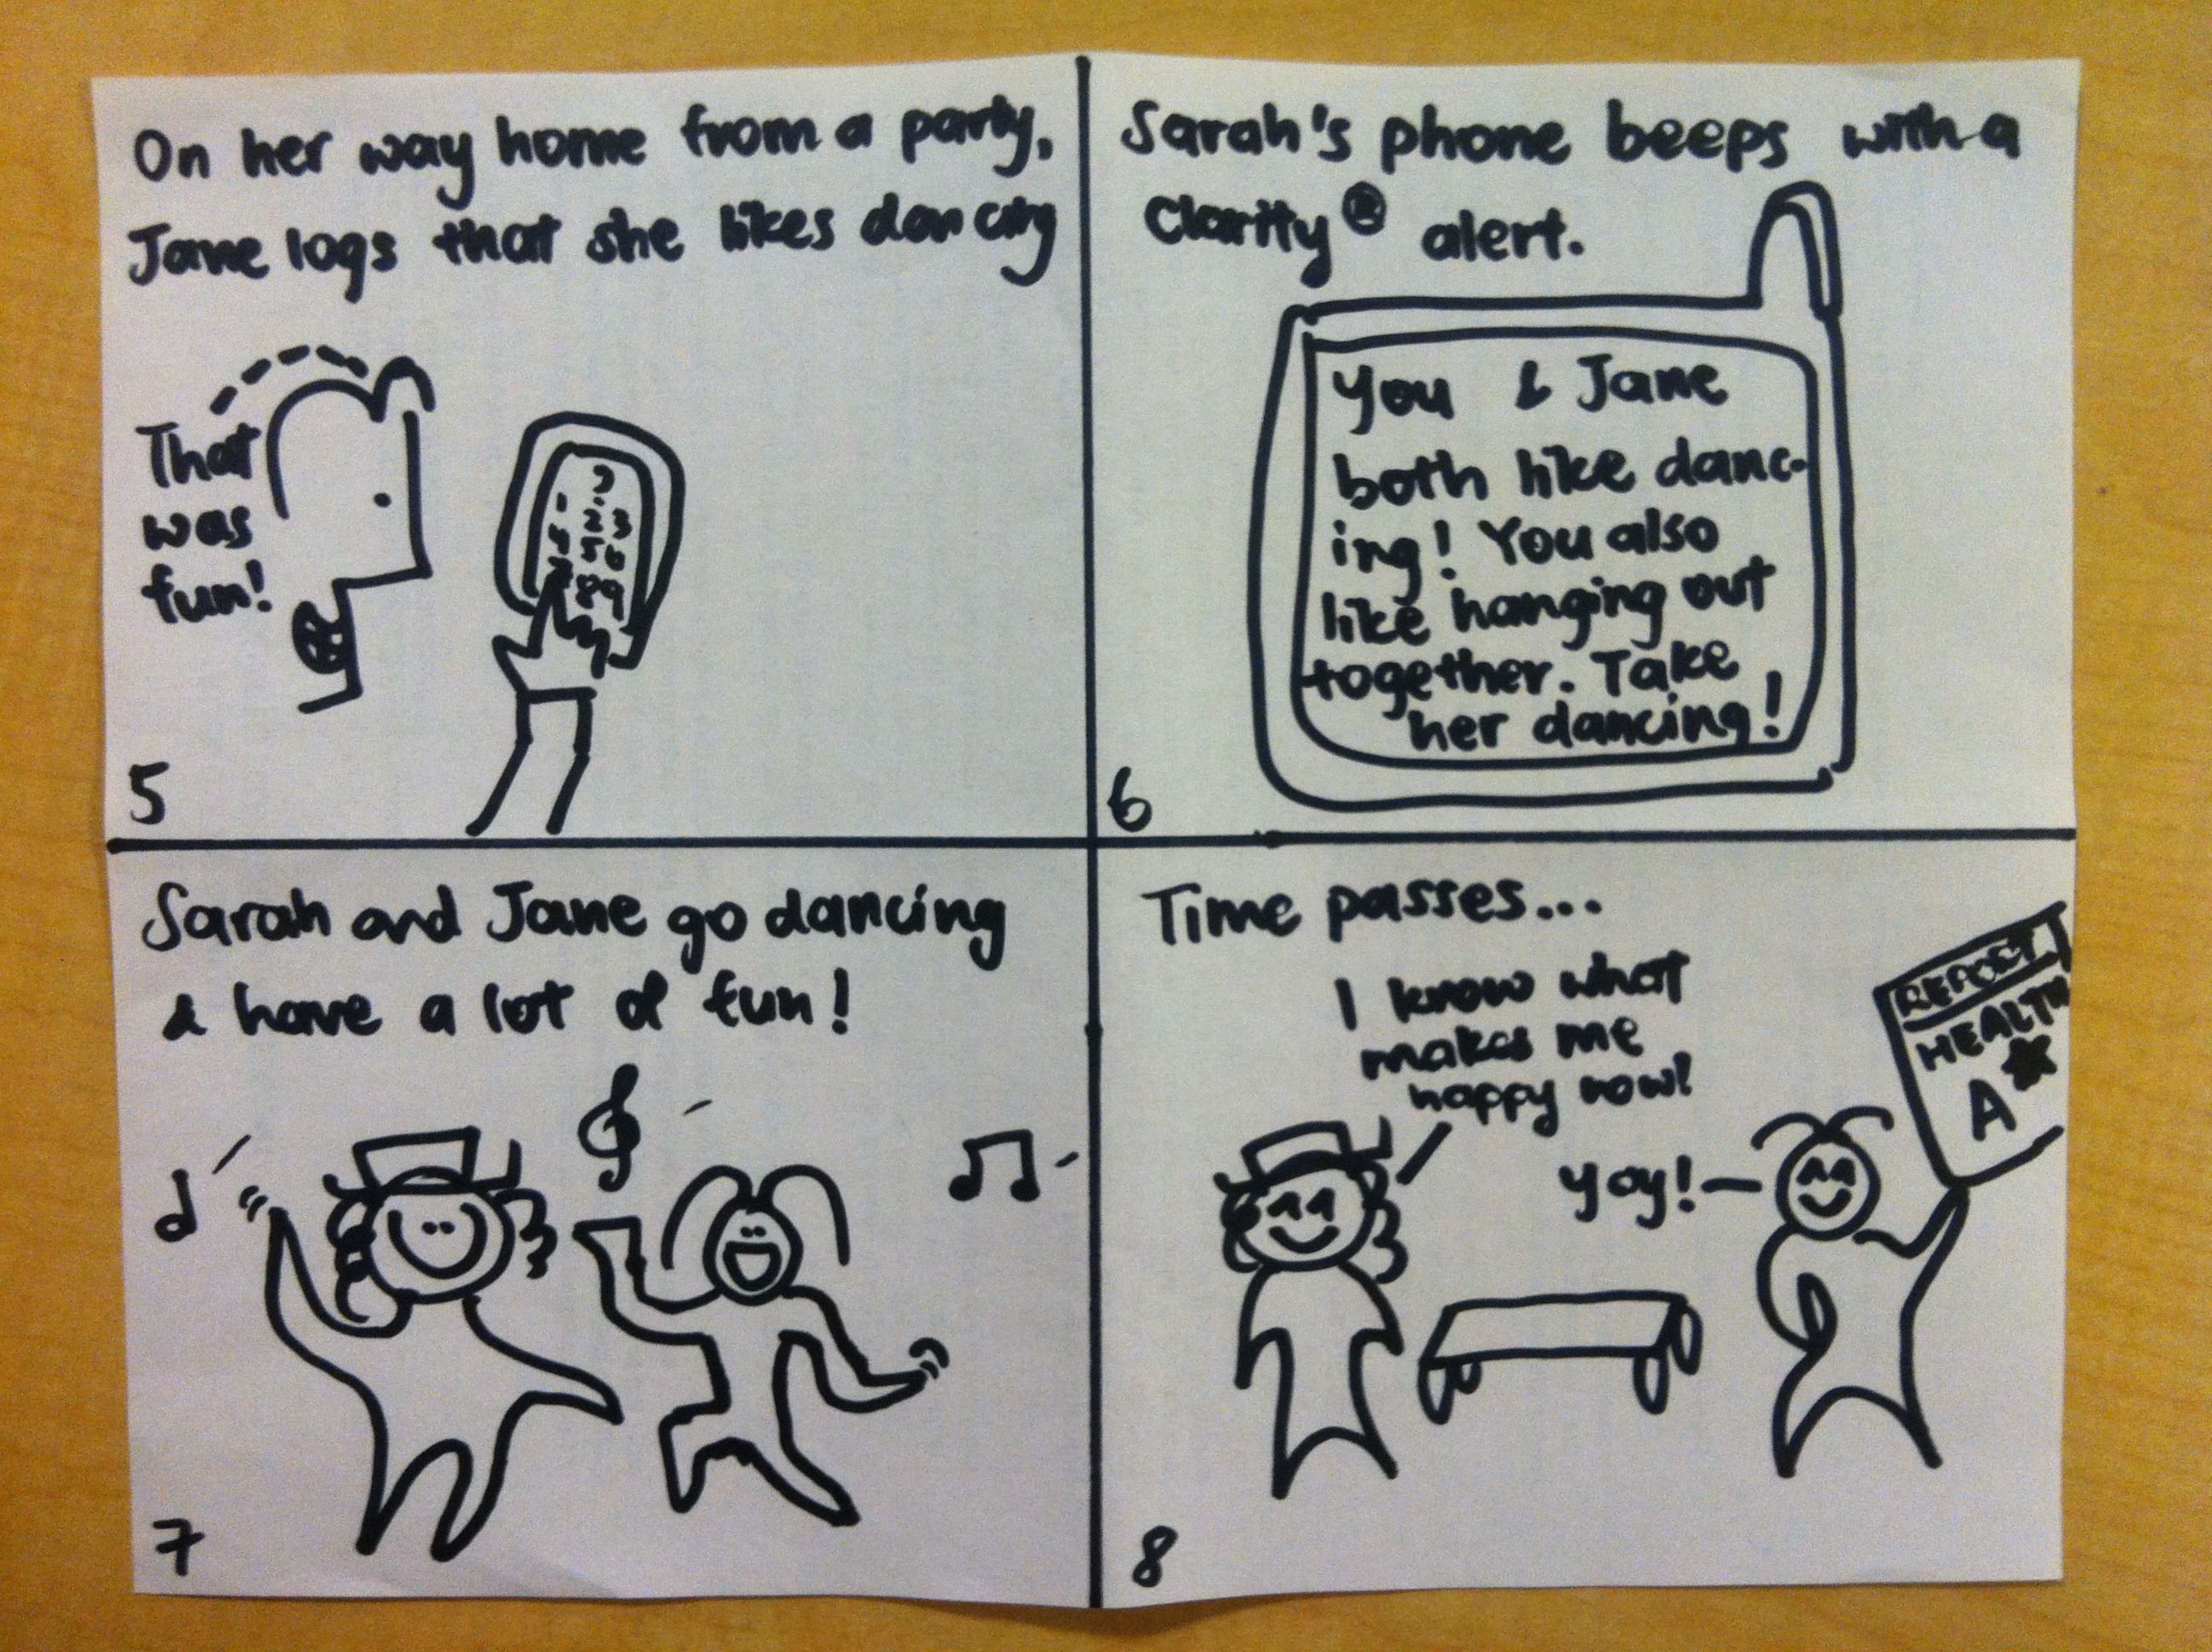 On her way home from a party,
Jane logs that she likes dancing
That
was
fun!
1 2 3
8 9
5
Sarah's phone beeps with a
Clarity® alert.
You & Jane
both like danc-
ing! You also
like hanging out
together. Take
her dancing!
6
Sarah and Jane go dancing
& have a lot of fun!
7
Time passes...
I know what
makes me
happy now!
yay!
REPORT
HEALTH
A
8